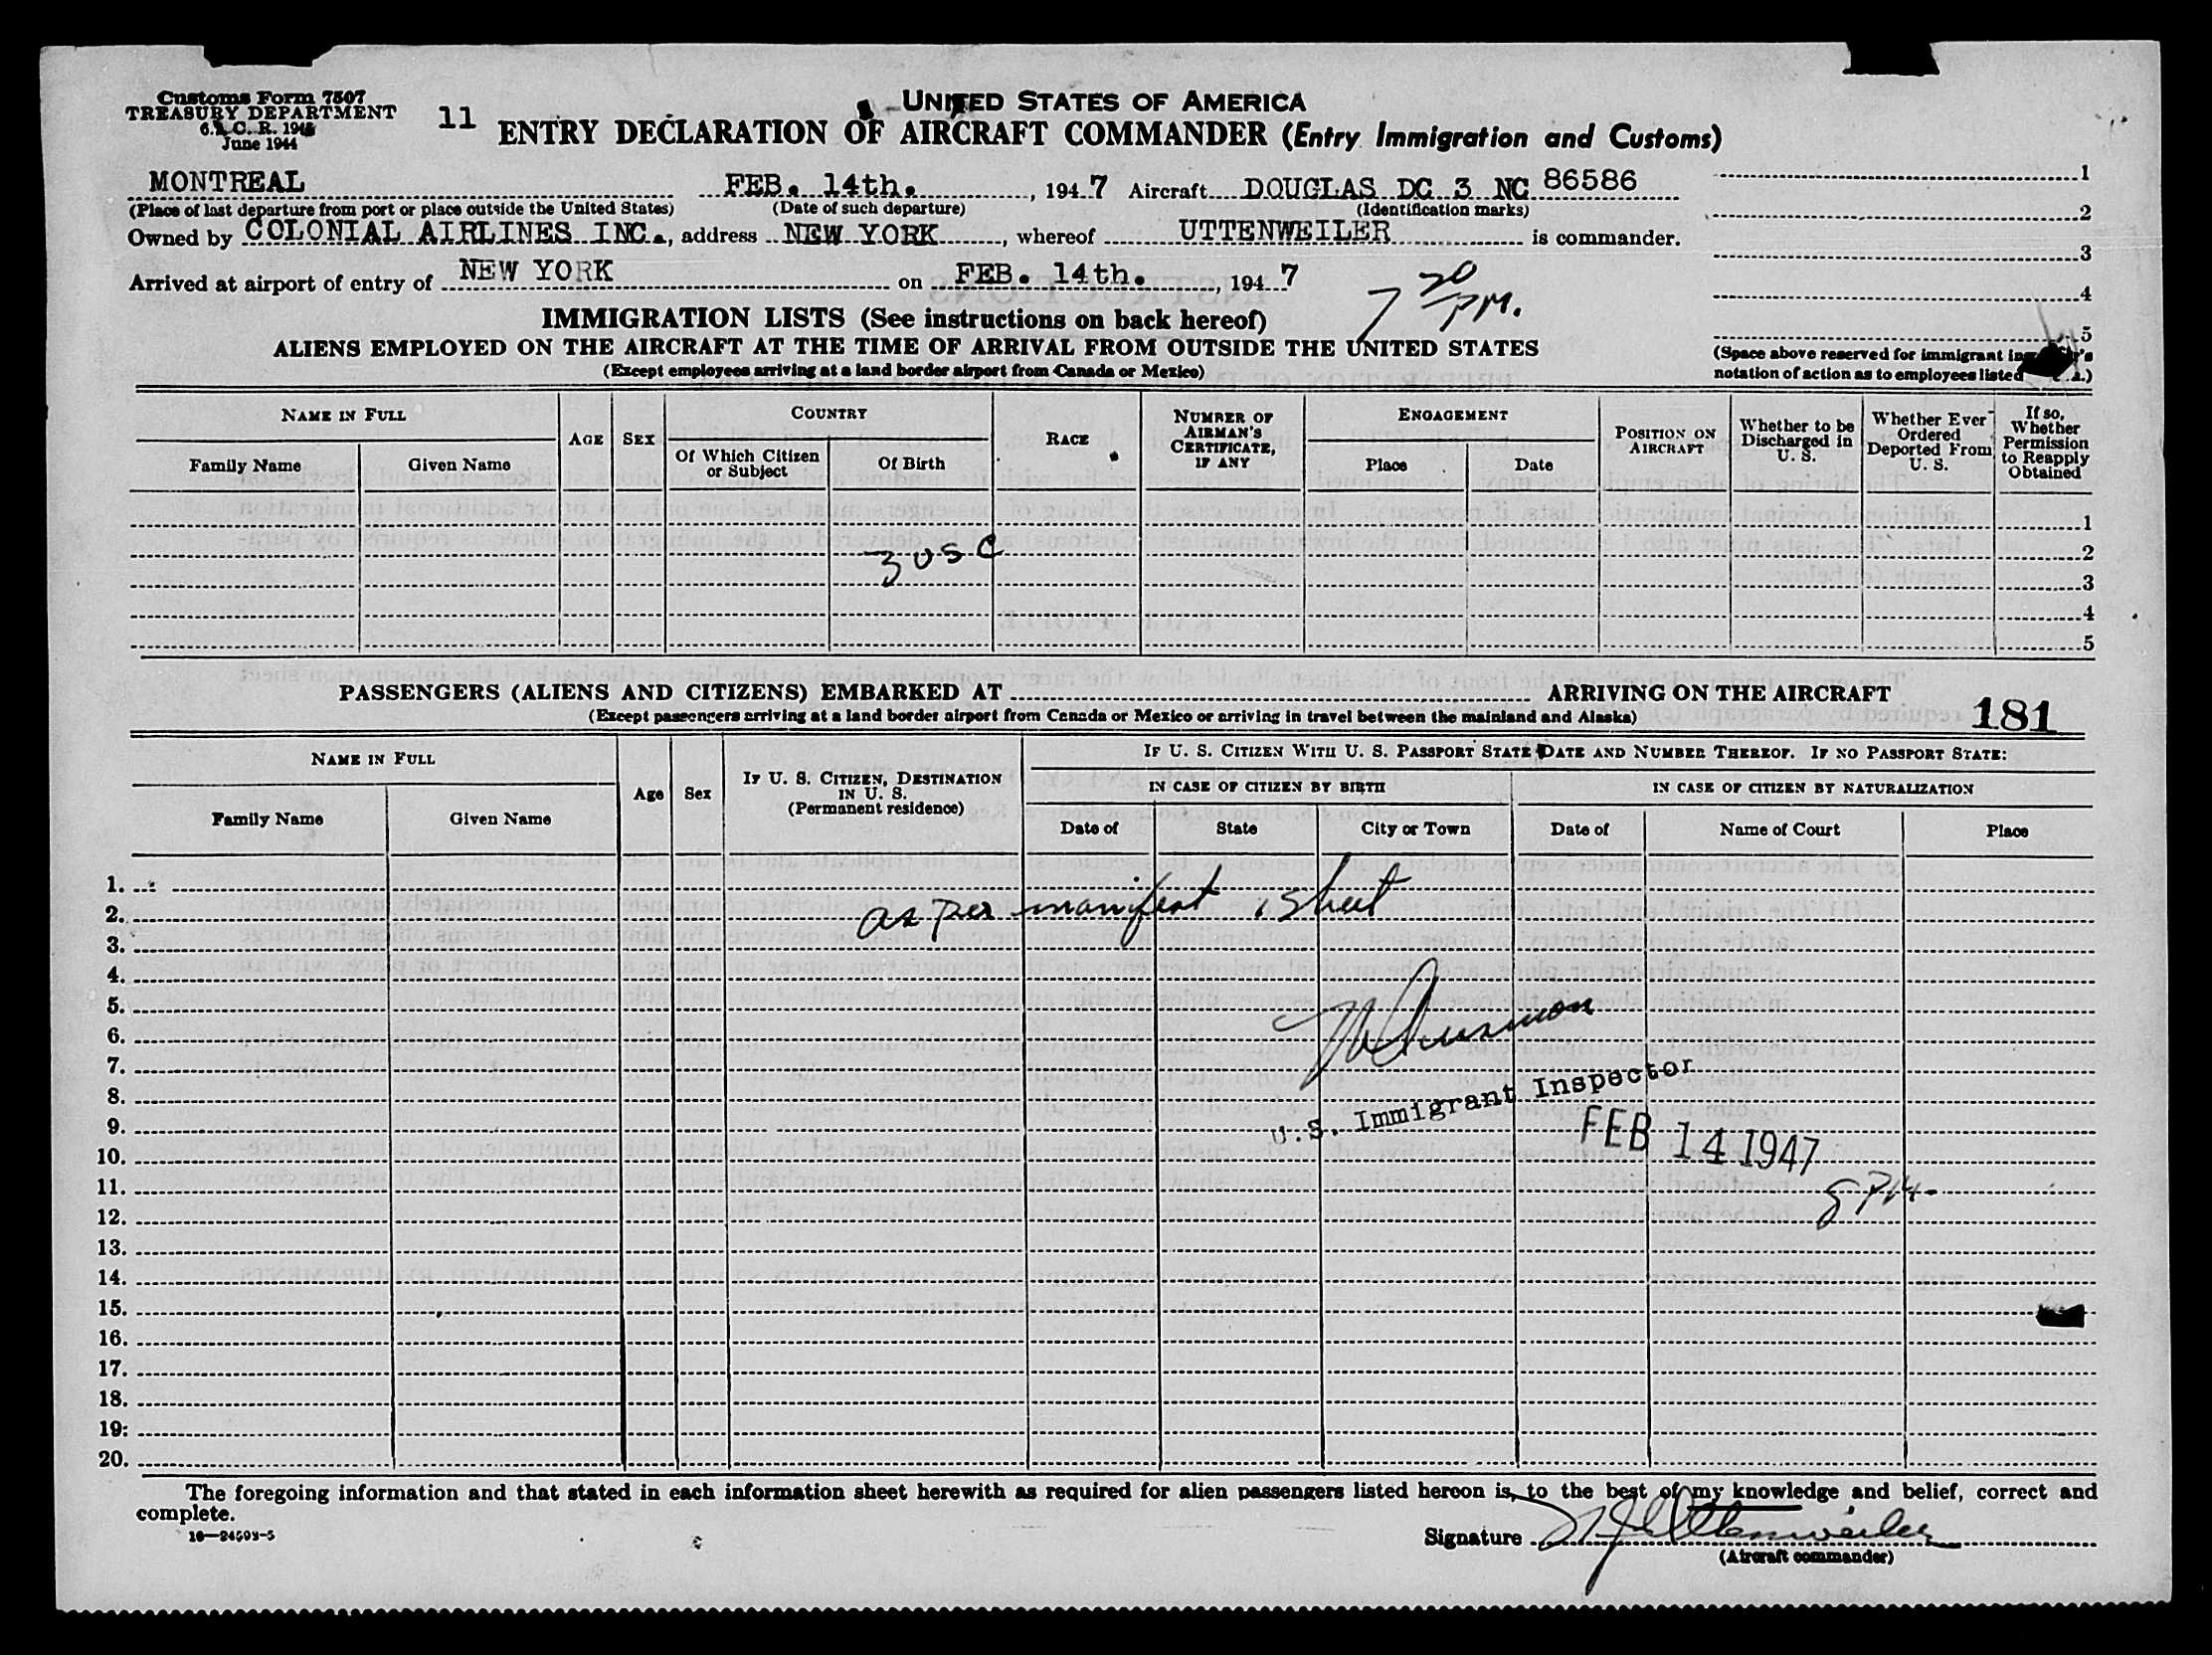 Customs Form 7507
TREASURY DEPARTMENT
June 1944
11
UNITED STATES OF AMERICA
ENTRY DECLARATION OF AIRCRAFT COMMANDER (Entry Immigration and Customs)
MONTREAL FEB. 14th., 1947 Aircraft DOUGLAS DC 3 NC 86586
(Place of last departure from port or place outside the United States) (Date of such departure) (Identification marks)
Owned by COLONIAL AIRLINES INC., address NEW YORK, whereof UTTENWEILER is commander.
Arrived at airport of entry of NEW YORK on FEB. 14th., 1947
7 30 PM.
1
2
3
4
5
(Space above reserved for immigrant
notation of action as to employees listed
IMMIGRATION LISTS (See instructions on back hereof)
ALIENS EMPLOYED ON THE AIRCRAFT AT THE TIME OF ARRIVAL FROM OUTSIDE THE UNITED STATES
(Except employees arriving at a land border airport from Canada or Mexico)
NAME IN FULL
Family Name Given Name
AGE SEX
COUNTRY
Of Which Citizen or Subject Of Birth
RACE
NUMBER OF AIRMAN'S CERTIFICATE, IF ANY
ENGAGEMENT
Place Date
POSITION ON AIRCRAFT
Whether to be Discharged in U. S.
Whether Ever Ordered Deported From U. S.
If so, Whether Permission to Reapply Obtained
1
3 USC 2
3
4
5
PASSENGERS (ALIENS AND CITIZENS) EMBARKED AT ARRIVING ON THE AIRCRAFT
(Except passengers arriving at a land border airport from Canada or Mexico or arriving in travel between the mainland and Alaska)
181
NAME IN FULL
Family Name Given Name
Age Sex
IF U. S. CITIZEN, DESTINATION IN U. S.
(Permanent residence)
IF U. S. CITIZEN WITH U. S. PASSPORT STATE DATE AND NUMBER THEREOF. IF NO PASSPORT STATE:
IN CASE OF CITIZEN BY BIRTH IN CASE OF CITIZEN BY NATURALIZATION
Date of State City or Town Date of Name of Court Place
1.
2. as per manifest 1 sheet
3.
4.
5.
6.
7.
8.
U.S. Immigrant Inspector
9.
FEB 14 1947
10.
11. 8 PM.
12.
13.
14.
15.
16.
17.
18.
19.
20.
The foregoing information and that stated in each information sheet herewith as required for alien passengers listed hereon is, to the best of my knowledge and belief, correct and
complete.
Signature Uttenweiler
(Aircraft commander)